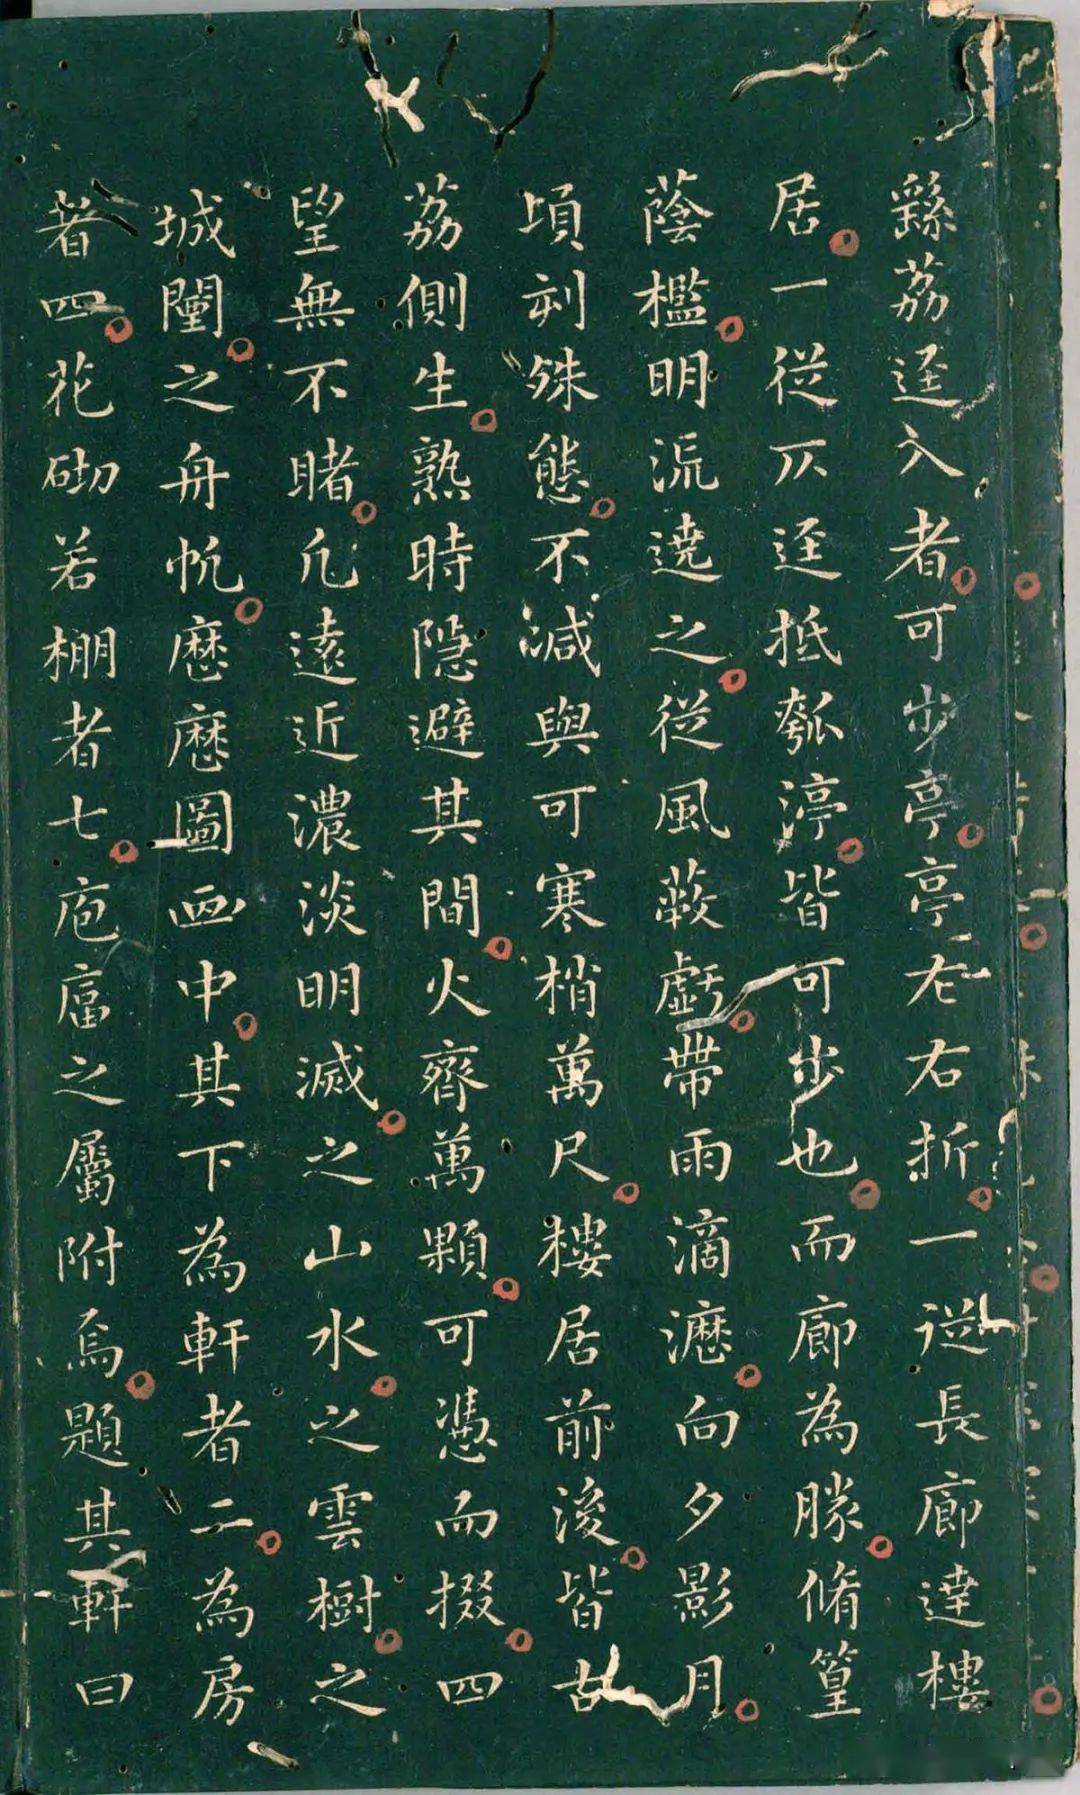 繇荔逕入者可步亭亭左右折一從長廊達樓
居一從仄逕抵瓠渟皆可步也而廊為勝脩篁
蔭檻明流遶之從風蔽虧帶雨滴瀝向夕影月
頃刻殊態不減與可寒梢萬尺樓居前後皆故
荔側生熟時隱避其間火齊萬顆可憑而掇四
望無不睹凡遠近濃淡明滅之山水之雲樹之
城闉之舟帆歷歷圖畫中其下為軒者二為房
者四花砌若棚者七庖湢之屬附焉題其軒曰